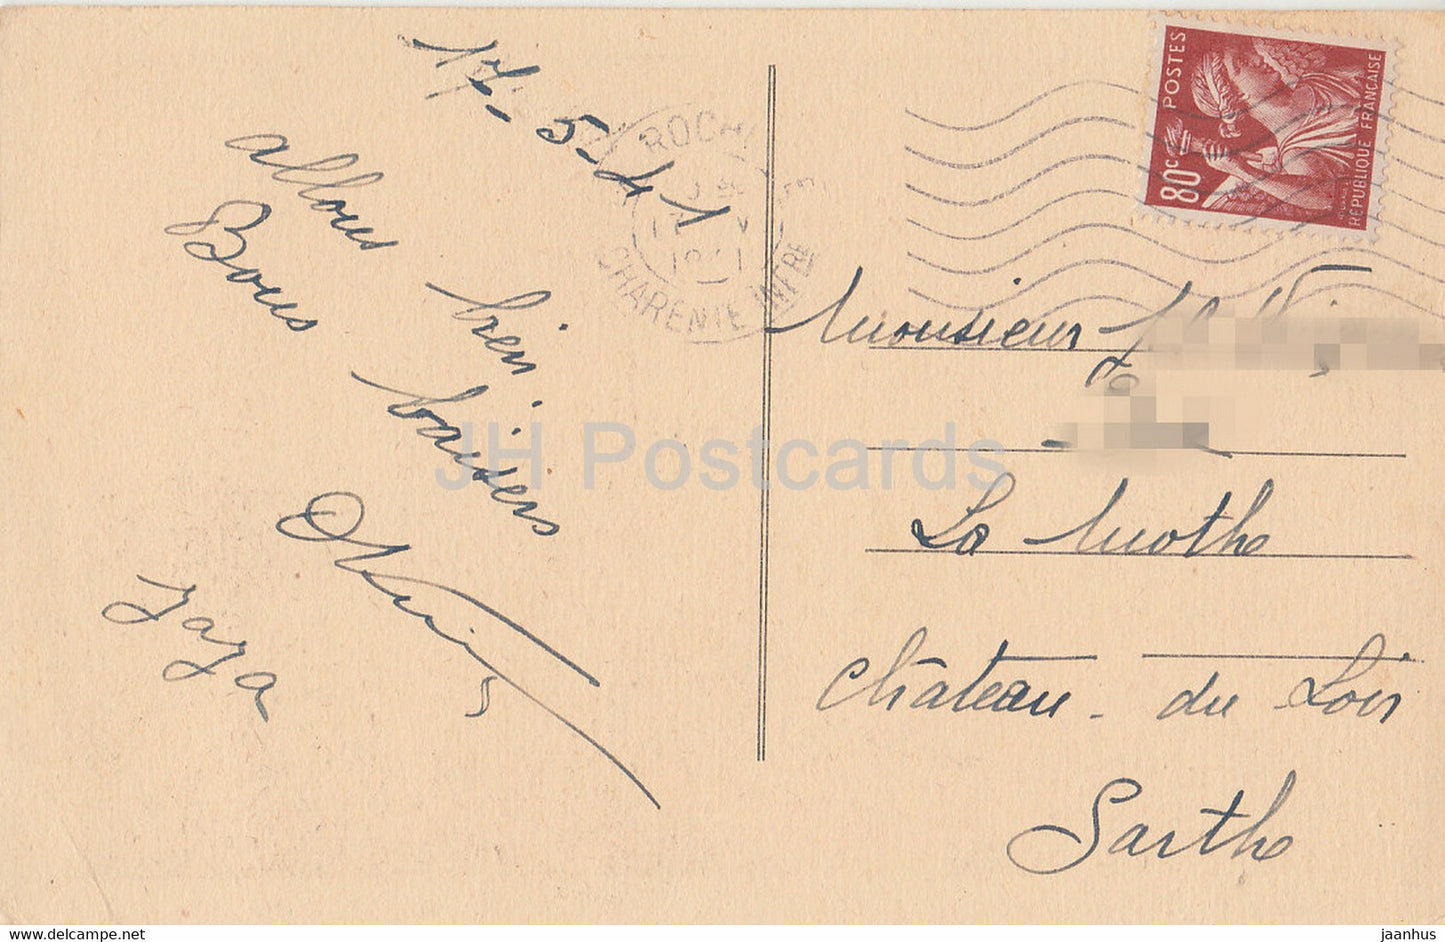 17-5-41
allons bien
Bons baisers
Zaza
ROCHE
17 V
1941
CHARENTE INFRE
POSTES
80c
RÉPUBLIQUE FRANÇAISE
Monsieur
La Mothe
Château-du Loir
Sarthe
JH Postcards
www.delcampe.net
jaanhus